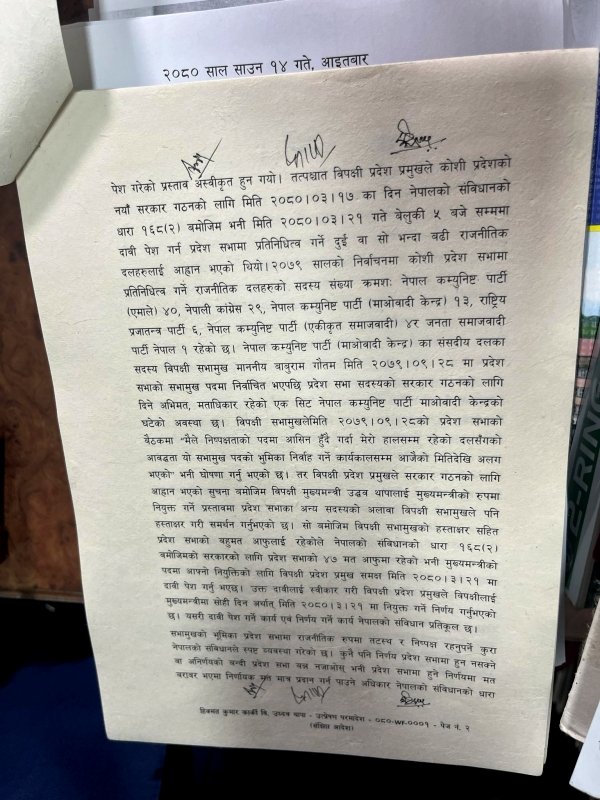 २०८० साल साउन १४ गते, आइतबार
पेश गरेको प्रस्ताव अस्वीकृत हुन गयो। तत्पश्चात विपक्षी प्रदेश प्रमुखले कोशी प्रदेशको
नयाँ सरकार गठनको लागि मिति २०८०।०३।१७ का दिन नेपालको संविधानको
धारा १६८(२) बमोजिम भनी मिति २०८०।०३।२१ गते बेलुकी ५ बजे सम्ममा
दाबी पेश गर्न प्रदेश सभामा प्रतिनिधित्व गर्ने दुई वा सो भन्दा बढी राजनीतिक
दलहरुलाई आह्वान भएको थियो।२०७९ सालको निर्वाचनमा कोशी प्रदेश सभामा
प्रतिनिधित्व गर्ने राजनीतिक दलहरुको सदस्य संख्या क्रमशः नेपाल कम्युनिष्ट पार्टी
(एमाले) ४०, नेपाली कांग्रेस २९, नेपाल कम्युनिष्ट पार्टी (माओवादी केन्द्र) १३, राष्ट्रिय
प्रजातन्त्र पार्टी ६, नेपाल कम्युनिष्ट पार्टी (एकीकृत समाजवादी) ४र जनता समाजवादी
पार्टी नेपाल १ रहेको छ। नेपाल कम्युनिष्ट पार्टी (माओवादी केन्द्र) का संसदीय दलका
सदस्य विपक्षी सभामुख माननीय बाबुराम गौतम मिति २०७९।०९।२८ मा प्रदेश
सभाको सभामुख पदमा निर्वाचित भएपछि प्रदेश सभा सदस्यको सरकार गठनको लागि
दिने अभिमत, मताधिकार रहेको एक सिट नेपाल कम्युनिष्ट पार्टी माओवादी केन्द्रको
घटेको अवस्था छ। विपक्षी सभामुखलेमिति २०७९।०९।२८को प्रदेश सभाको
बैठकमा "मैले निष्पक्षताको पदमा आसिन हुँदै गर्दा मेरो हालसम्म रहेको दलसँगको
आवद्धता यो सभामुख पदको भुमिका निर्वाह गर्ने कार्यकालसम्म आजैको मितिदेखि अलग
भएको" भनी घोषणा गर्नु भएको छ। तर विपक्षी प्रदेश प्रमुखले सरकार गठनको लागि
आह्वान भएको सुचना बमोजिम विपक्षी मुख्यमन्त्री उद्धव थापालाई मुख्यमन्त्रीको रुपमा
नियुक्त गर्ने प्रस्तावमा प्रदेश सभाका अन्य सदस्यको अलावा विपक्षी सभामुखले पनि
हस्ताक्षर गरी समर्थन गर्नुभएको छ। सो बमोजिम विपक्षी सभामुखको हस्ताक्षर सहित
प्रदेश सभाको बहुमत आफुलाई रहेकोले नेपालको संविधानको धारा १६८(२)
बमोजिमको सरकारको लागि प्रदेश सभाको ४७ मत आफुमा रहेको भनी मुख्यमन्त्रीको
पदमा आफ्नो नियुक्तिको लागि विपक्षी प्रदेश प्रमुख समक्ष मिति २०८०।३।२१ मा
दाबी पेश गर्नु भएछ। उक्त दाबीलाई स्वीकार गरी विपक्षी प्रदेश प्रमुखले विपक्षीलाई
मुख्यमन्त्रीमा सोही दिन अर्थात् मिति २०८०।३।२१ मा नियुक्त गर्ने निर्णय गर्नुभएको
छ। यसरी दाबी पेश गर्ने कार्य एवं निर्णय गर्ने कार्य नेपालको संविधान प्रतिकूल छ।
सभामुखको भुमिका प्रदेश सभामा राजनीतिक रुपमा तटस्थ र निष्पक्ष रहनुपर्ने कुरा
नेपालको संविधानले स्पष्ट व्यवस्था गरेको छ। कुनै पनि निर्णय प्रदेश सभामा हुन नसक्ने
वा अनिर्णयको बन्दी प्रदेश सभा बन्न नजाओस् भनी प्रदेश सभामा हुने निर्णयमा मत
बराबर भएमा निर्णायक मत मात्र प्रदान गर्न पाउने अधिकार नेपालको संविधानको धारा
हिक्मत कुमार कार्की वि. उध्दव थापा - उत्प्रेषण परमादेश - ०८०-WF-०००१ - पेज नं. २
(संक्षिप्त आदेश)